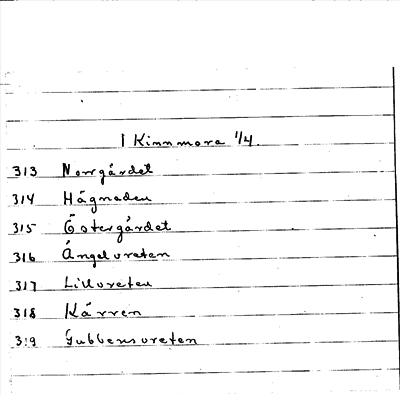 1 Kinnmora 1/4.
313 Norrgärdet
314 Hägnaden
315 Östergärdet
316 Ängelvreten
317 Lillvreten
318 Kärren
319 Gubbensvreten